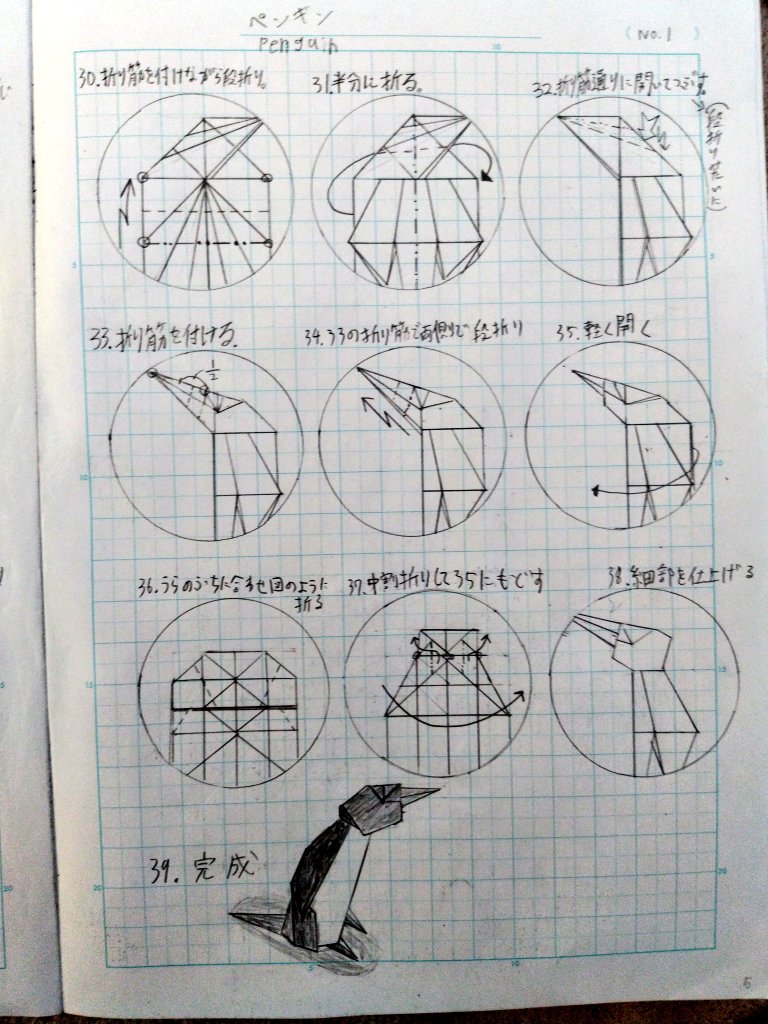 ペンギン
penguin
(NO.1 )
30.折り筋を付けながら段折り。
31.半分に折る。
32.折り筋通りに開いてつぶす。
(段折り
33.折り筋を付ける。
1/2
34.33の折り筋で両側で段折り
35.軽く開く
36.うらのふちに合わせ図のように
折る
37.中割り折りして35にもどす
38.細部を仕上げる
39.完成
5
10
15
20
5
10
15
20
5
10
6